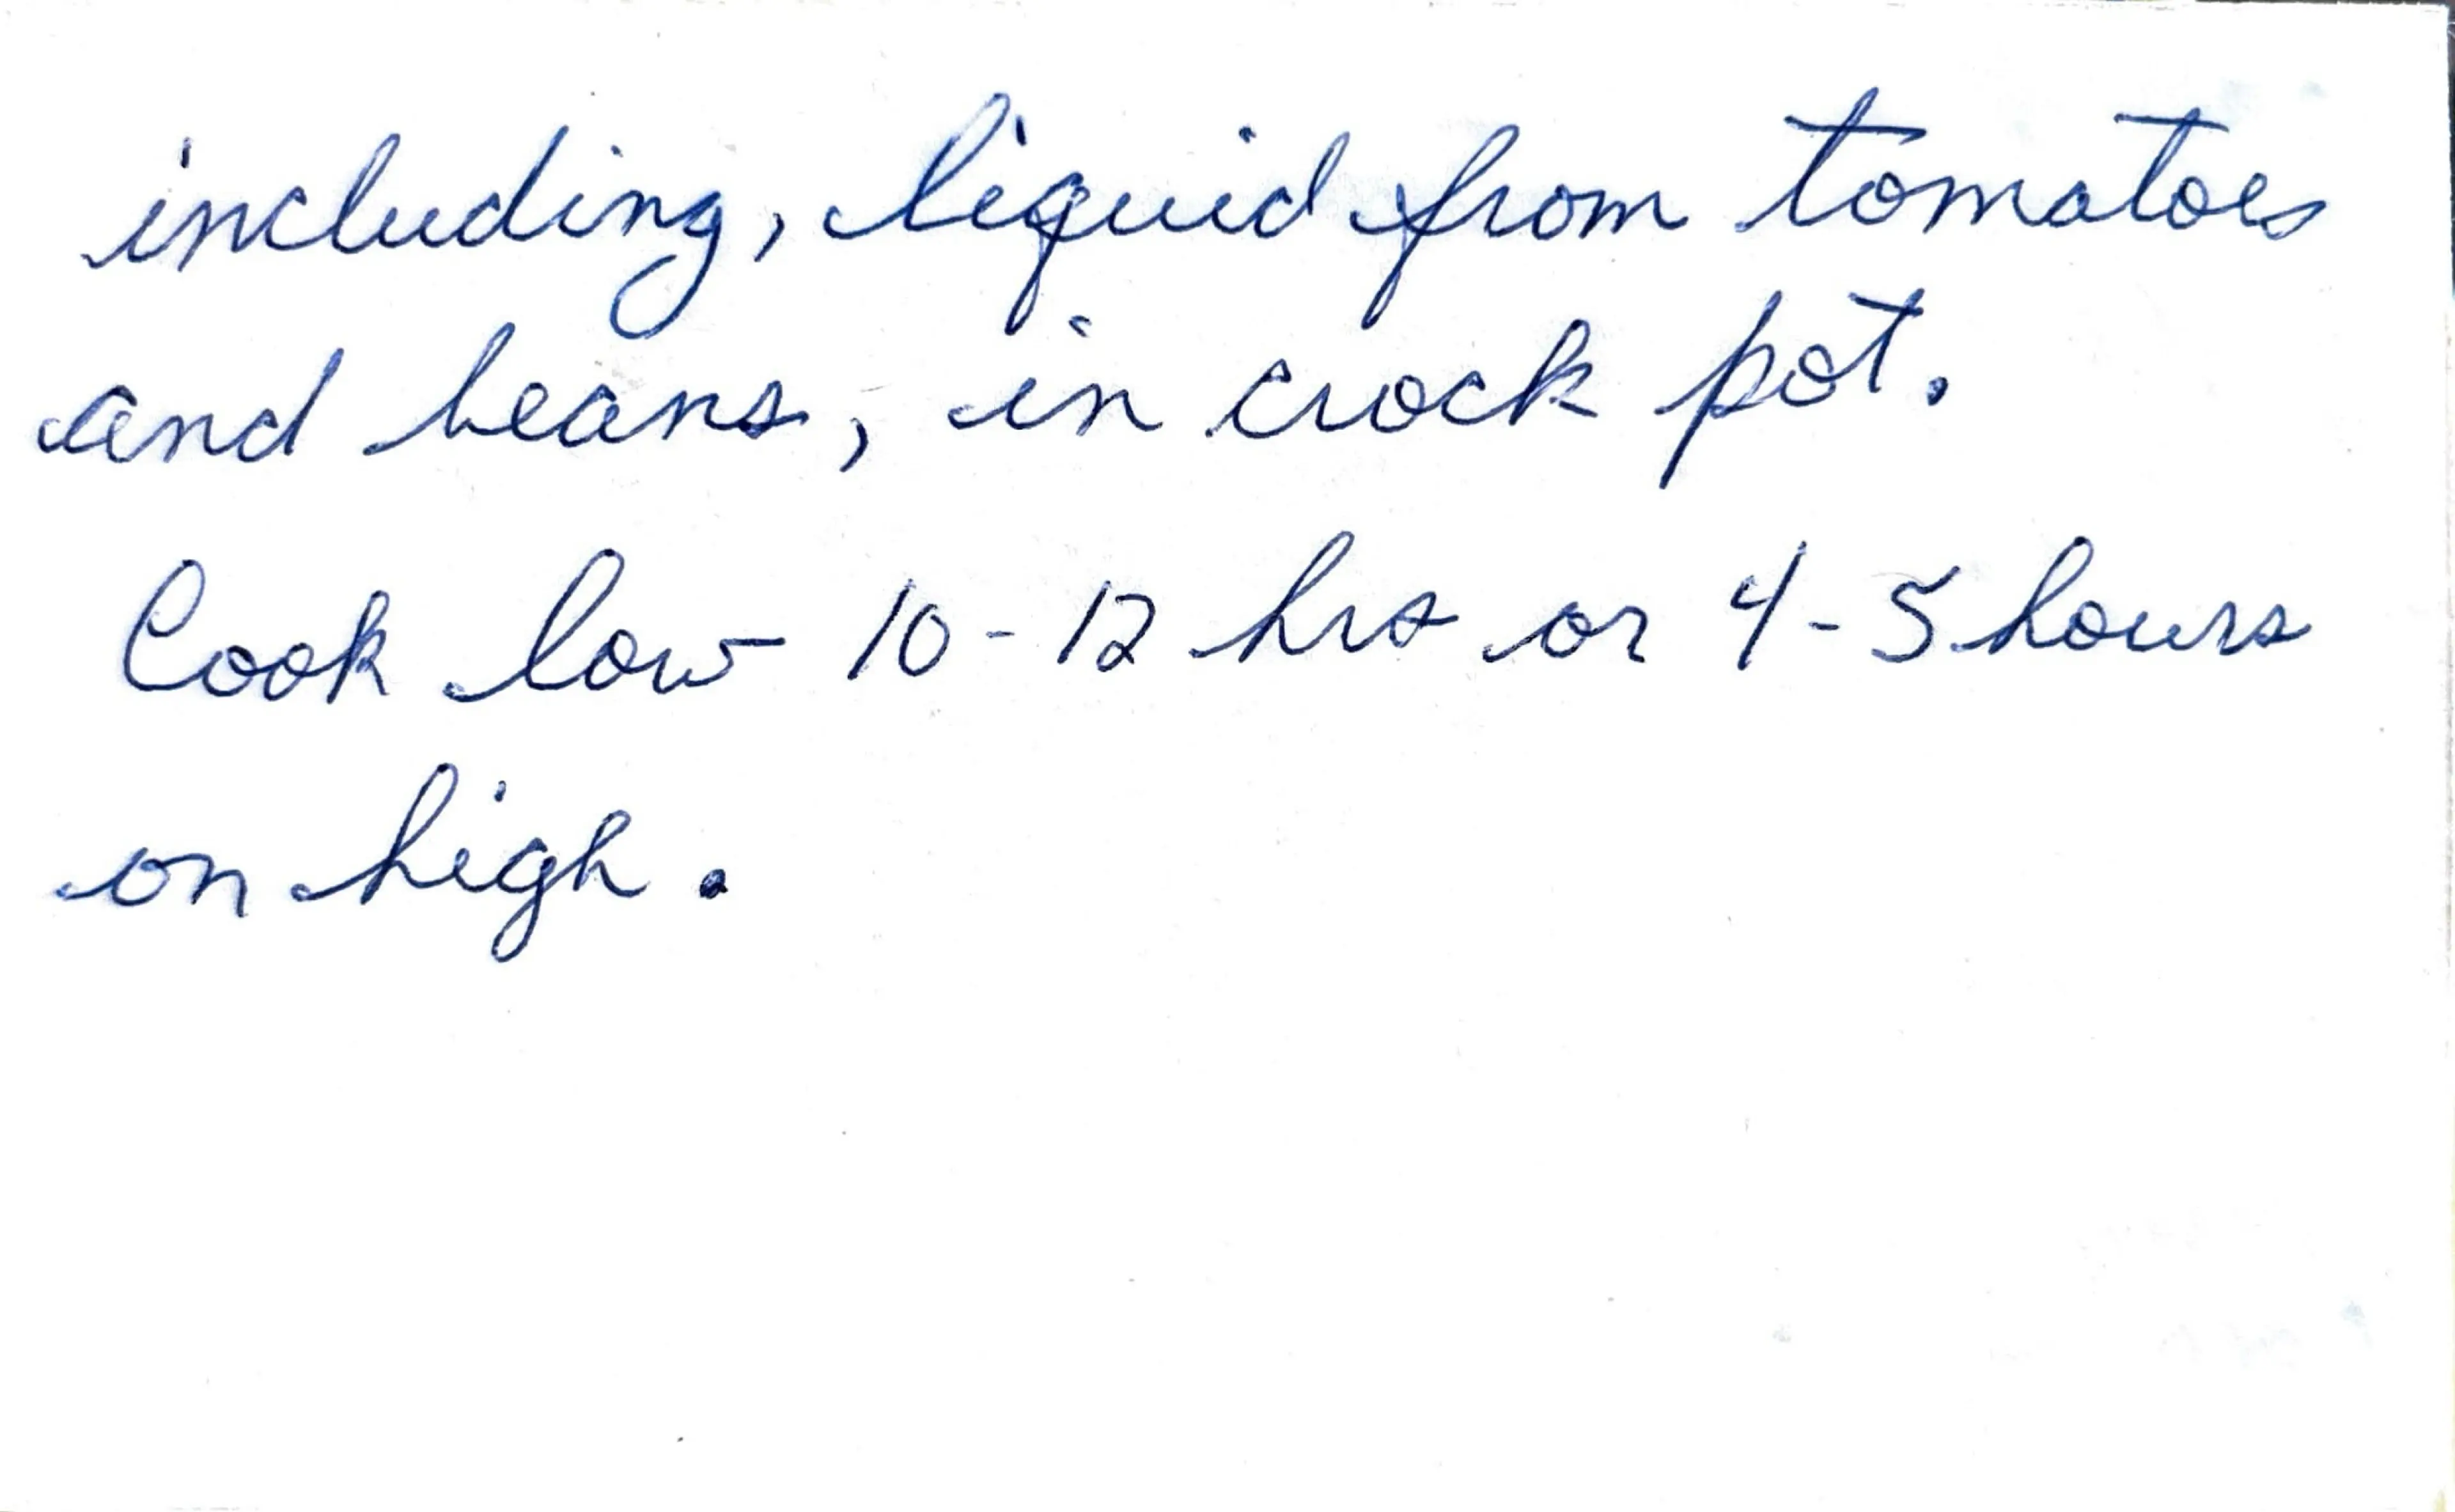 including, liquid from tomatoes
and beans, in crock pot.
Cook low 10-12 hrs or 4-5 hours
on high.